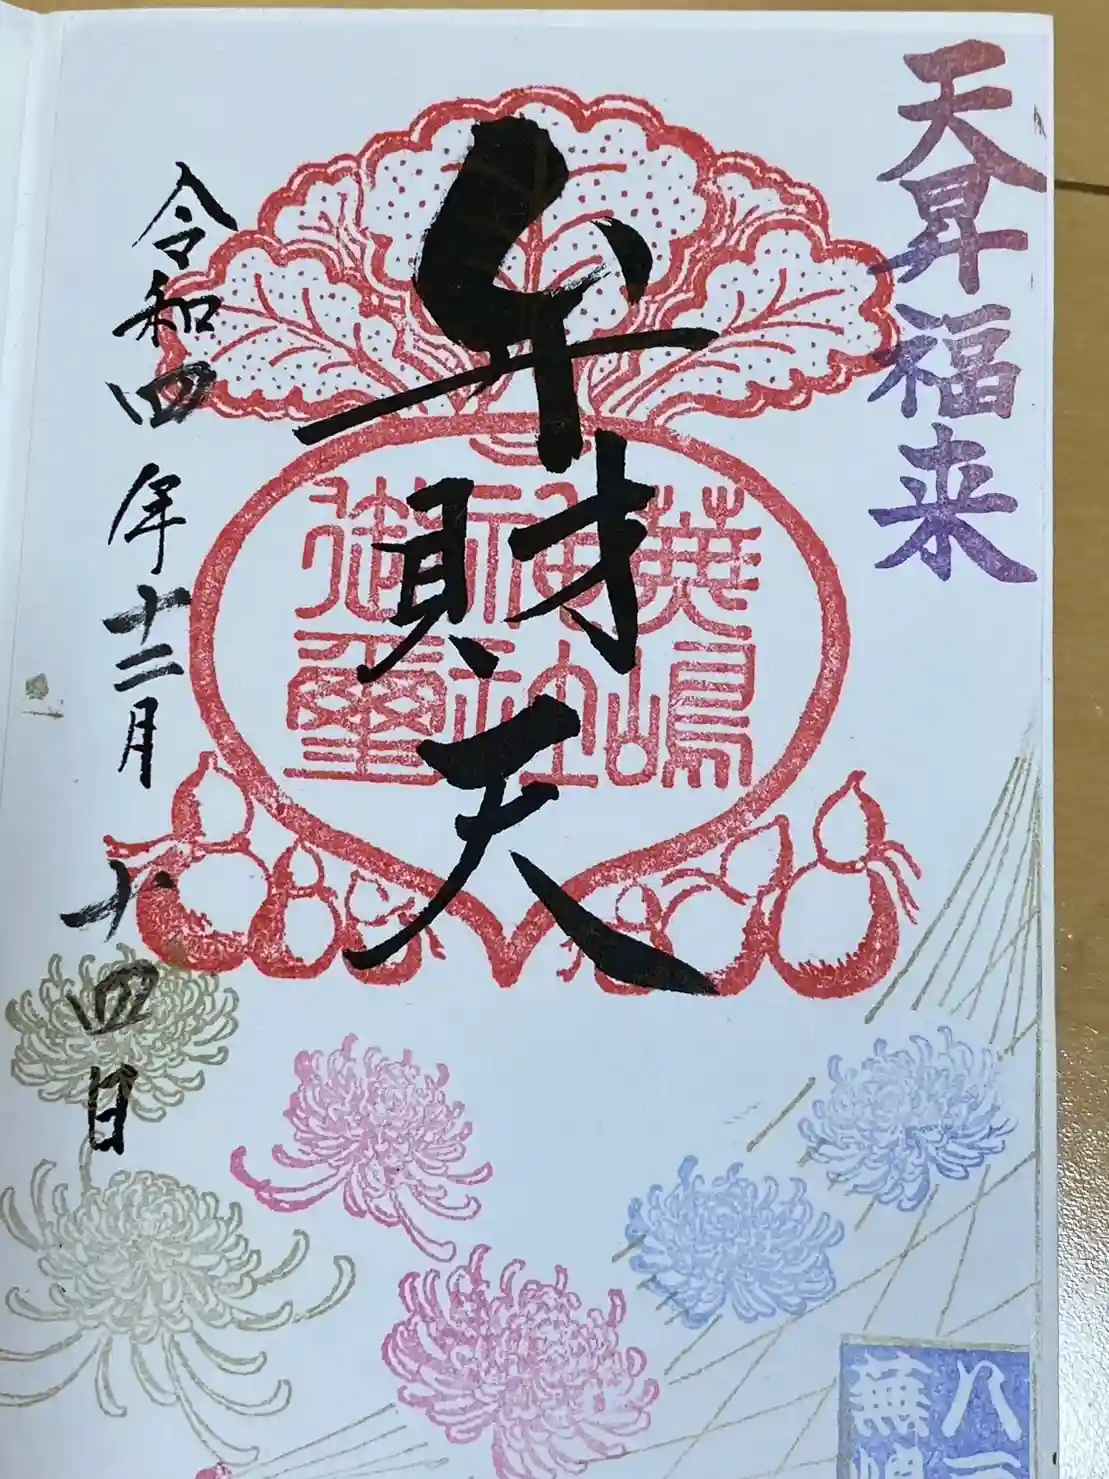 天昇福来
弁財天
蕪嶋
神社
御璽
令和四年十二月十四日
八
蕪